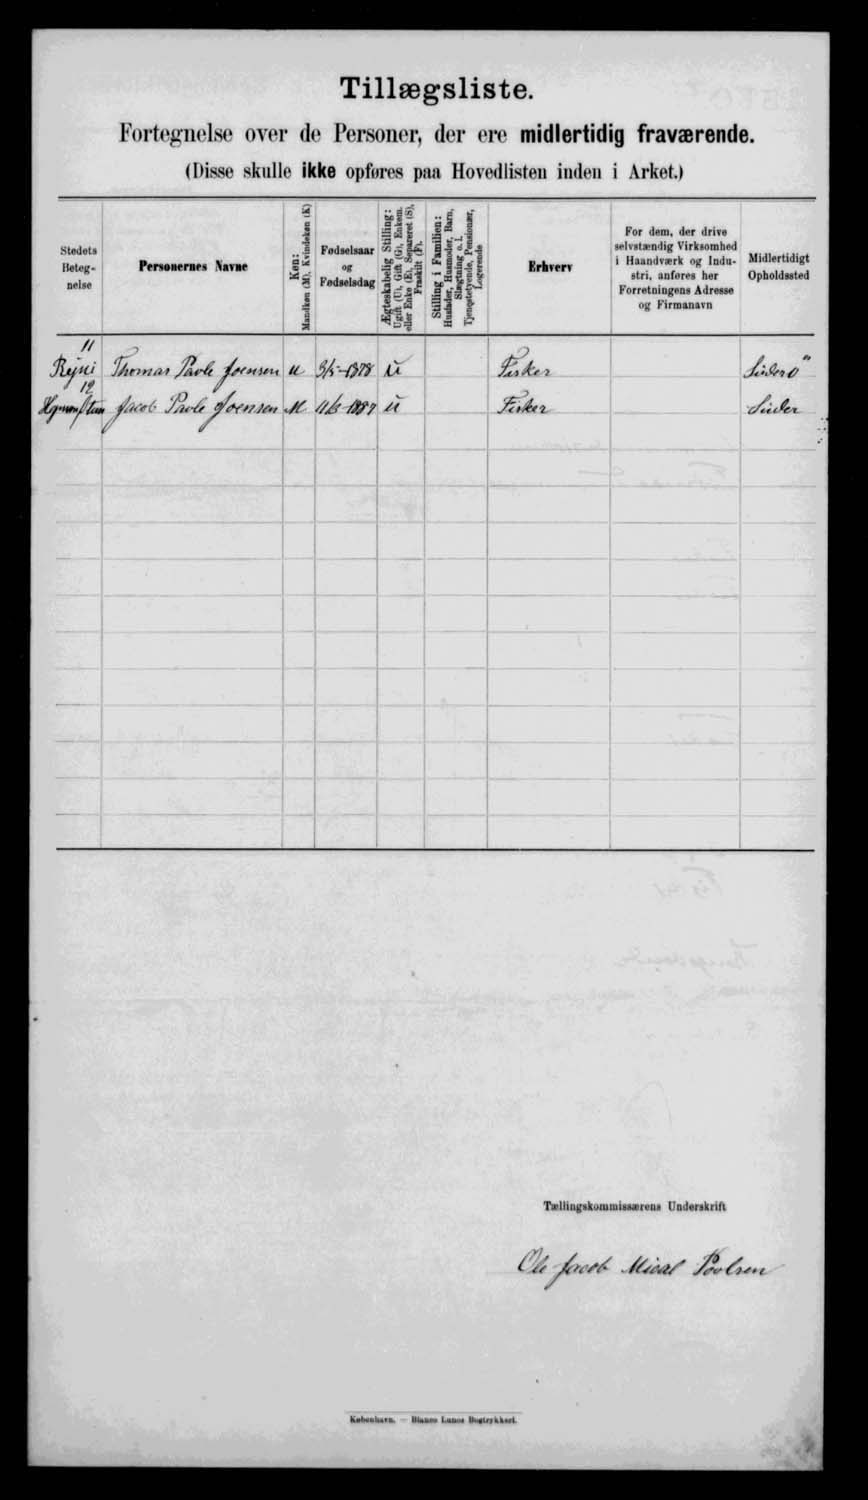 Tillægsliste.
Fortegnelse over de Personer, der ere midlertidig fraværende.
(Disse skulle ikke opføres paa Hovedlisten inden i Arket.)
Stedets Beteg- nelse
Personernes Navne
Køn: Mandkøn (M), Kvindekøn (K)
Fødselsaar og Fødselsdag
Ægteskabelig Stilling: Ugift (U), Gift (G), Enkem. eller Enke (E), Separeret (S), Fraskilt (F).
Stilling i Familien: Husfader, Husmoder, Barn, Slægtning o. l. Tjenestetyende, Pensionær, Logerende
Erhverv
For dem, der drive selvstændig Virksomhed i Haandværk og Indu- stri, anføres her Forretningens Adresse og Firmanavn
Midlertidigt Opholdssted
11
Rejni Thomas Pavle Joensen M 3/5-1878 U Fisker Suderö
12
Jacob Pavle Joensen M U Fisker Suder
Tællingskommissærens Underskrift
Ole Jacob Mical Poulsen
København. — Bianco Lunos Bogtrykkeri.